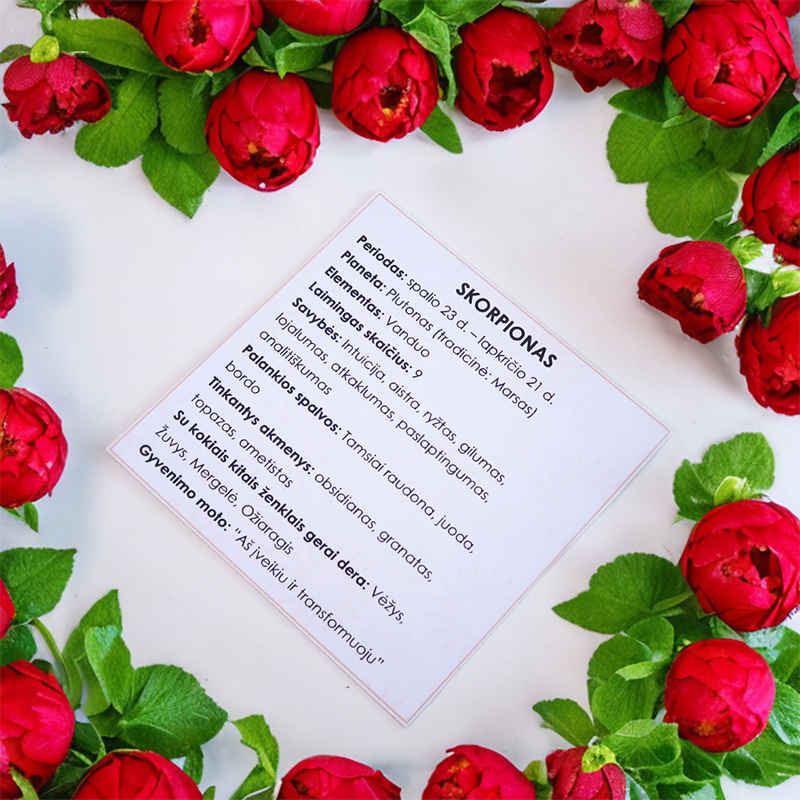 SKORPIONAS
Periodas: spalio 23 d. – lapkričio 21 d.
Planeta: Plutonas (tradicinė: Marsas)
Elementas: Vanduo
Laimingas skaičius: 9
Savybės: Intuicija, aistra, ryžtas, gilumas,
lojalumas, atkaklumas, paslaptingumas,
analitiškumas
Palankios spalvos: Tamsiai raudona, juoda,
bordo
Tinkantys akmenys: obsidianas, granatas,
topazas, ametistas
Su kokiais kitais ženklais gerai dera: Vėžys,
Žuvys, Mergelė, Ožiaragis
Gyvenimo moto: "Aš įveikiu ir transformuoju"